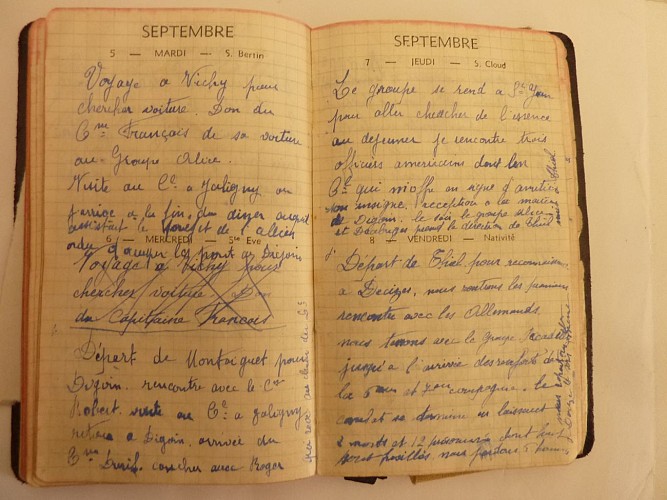 SEPTEMBRE
5 — MARDI — S. Bertin
Voyage a Vichy pour
chercher voiture. Don du
Cne Français de sa voiture
au Groupe
Visite au Cl a Jaligny ou
j'arrive a la fin d'un diner auquel
assistait le et de l'allier
ordre d'occuper les ponts de Digoin
6 — MERCREDI — Ste Eve
Voyage a Vichy pour
chercher voiture Don
du Capitaine Francois
Départ de Montaiguet pour
Digoin. rencontre avec le Cne
Robert, visite au Cl a Jaligny
retour a Digoin, arrivée du
Cne coucher avec Roger
SEPTEMBRE
7 — JEUDI — S. Cloud
Le groupe se rend a St Yan
pour aller chercher de l'essence
au dejeuner je rencontre trois
officiers americains dont un
Cne qui m'offre en signe d'amitié
son insigne, reception a la mairie
de Digoin. le soir le groupe
et prend la direction de Thiel
8 — VENDREDI — Nativité
Départ de Thiel pour reconnaissance
a Decizes, nous
rencontre avec les Allemands.
nous tenons avec le groupe
jusqu'a l'arrivée des renforts de
la 6 et compagnie. Le
combat se termine en laissant
2 morts et 12 prisonniers dont huit
sont fusillés, nous perdons 5 hommes